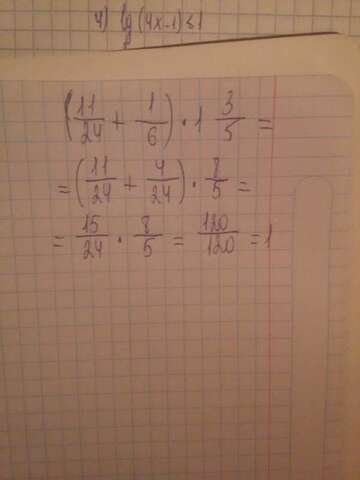 4) lg(4x-1)≤1
(11/24 + 1/6) · 1 3/5 =
= (11/24 + 4/24) · 8/5 =
= 15/24 · 8/5 = 120/120 = 1